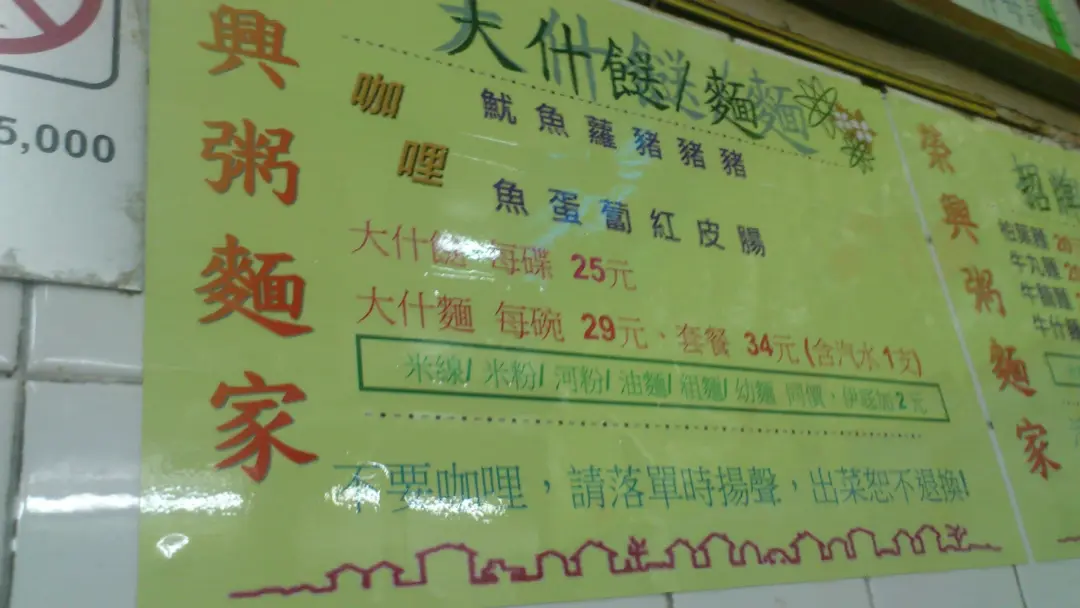 5,000
興粥麵家
大什餸/麵
咖哩
魷魚蘿豬豬豬
魚蛋蔔紅皮腸
大什餸 每碟 25元
大什麵 每碗 29元、套餐 34元(含汽水1支)
米線/ 米粉/ 河粉/ 油麵/ 粗麵/ 幼麵 同價，伊麵加2元
不要咖哩，請落單時揚聲，出菜恕不退換!
榮興粥麵家
招牌
牛丸麵
牛腩麵